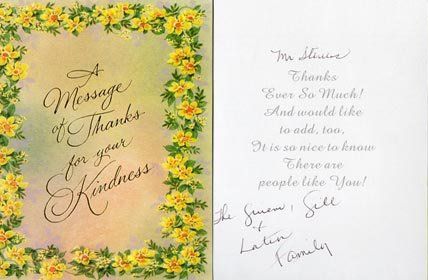 A
Message
of Thanks
for your
Kindness
Mr Stevens
Thanks
Ever So Much!
And would like
to add, too,
It is so nice to know
There are
people like You!
The
Gill
+
Family